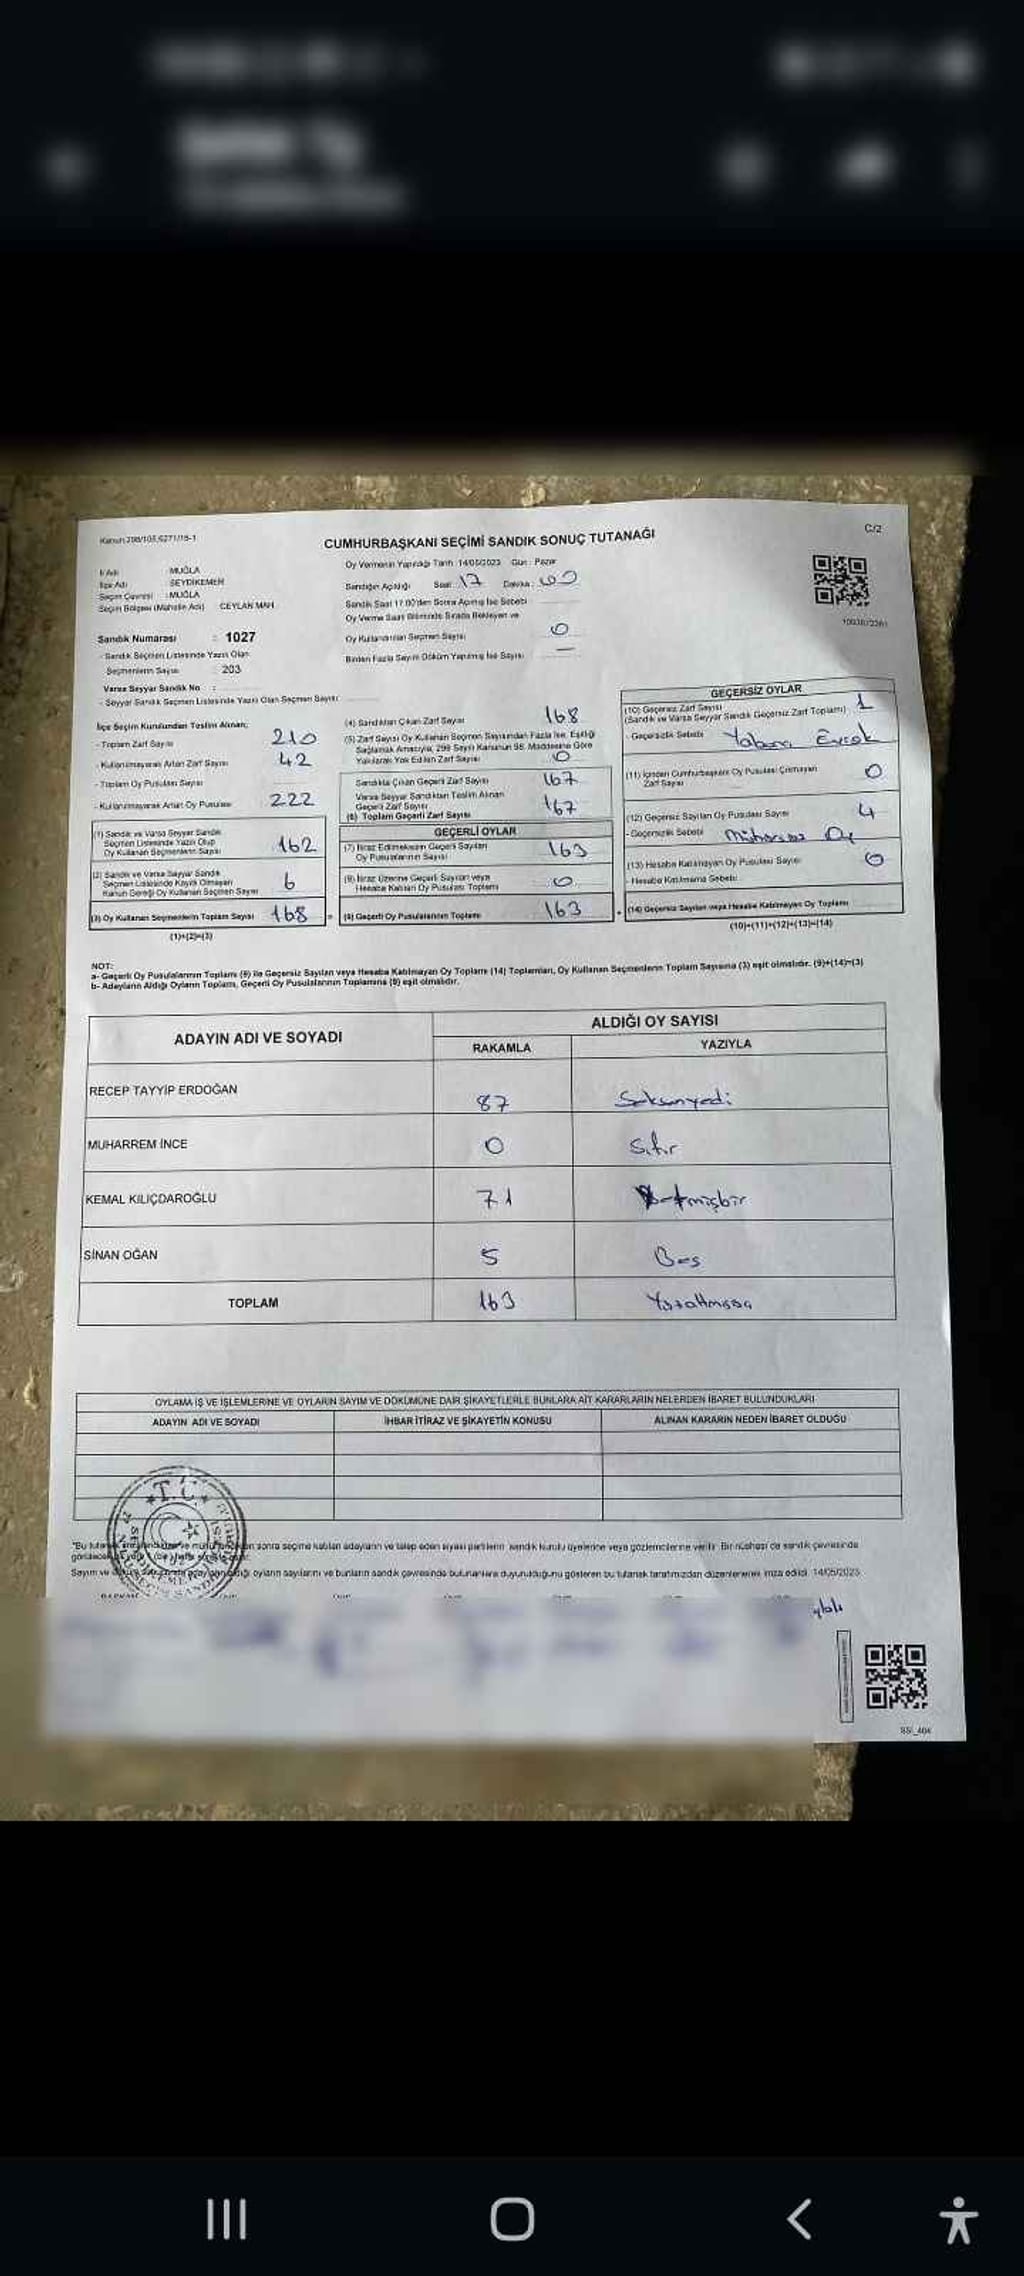 Kanun:298/105,6271/18-1
C/2
CUMHURBAŞKANI SEÇİMİ SANDIK SONUÇ TUTANAĞI
İl Adı : MUĞLA
İlçe Adı : SEYDİKEMER
Seçim Çevresi : MUĞLA
Seçim Bölgesi (Mahalle Adı) CEYLAN MAH.
Sandık Numarası : 1027
- Sandık Seçmen Listesinde Yazılı Olan
Seçmenlerin Sayısı 203
Varsa Seyyar Sandık No :
- Seyyar Sandık Seçmen Listesinde Yazılı Olan Seçmen Sayısı
Oy Vermenin Yapıldığı Tarih: 14/05/2023 Gün: Pazar
Sandığın Açıldığı Saat: 17 Dakika:
Sandık Saat 17:00'den Sonra Açılmış İse Sebebi
Oy Verme Saati Bitiminde Sırada Bekleyen ve
Oy Kullandırılan Seçmen Sayısı 0
Birden Fazla Sayım Döküm Yapılmış İse Sayısı —
İlçe Seçim Kurulundan Teslim Alınan;
- Toplam Zarf Sayısı 210
- Kullanılmayarak Artan Zarf Sayısı 42
- Toplam Oy Pusulası Sayısı
- Kullanılmayarak Artan Oy Pusulası 222
(1) Sandık ve Varsa Seyyar Sandık
Seçmen Listesinde Yazılı Olup
Oy Kullanan Seçmenlerin Sayısı 162
(2) Sandık ve Varsa Seyyar Sandık
Seçmen Listesinde Kayıtlı Olmayan
Kanun Gereği Oy Kullanan Seçmen Sayısı 6
(3) Oy Kullanan Seçmenlerin Toplam Sayısı 168
(1)+(2)=(3)
(4) Sandıktan Çıkan Zarf Sayısı 168
(5) Zarf Sayısı Oy Kullanan Seçmen Sayısından Fazla İse, Eşitliği
Sağlamak Amacıyla, 298 Sayılı Kanunun 98. Maddesine Göre
Yakılarak Yok Edilen Zarf Sayısı 0
Sandıkta Çıkan Geçerli Zarf Sayısı 167
Varsa Seyyar Sandıktan Teslim Alınan
Geçerli Zarf Sayısı
(6) Toplam Geçerli Zarf Sayısı 167
GEÇERLİ OYLAR
(7) İtiraz Edilmeksizin Geçerli Sayılan
Oy Pusulalarının Sayısı 163
(8) İtiraz Üzerine Geçerli Sayılan veya
Hesaba Katılan Oy Pusulası Toplamı 0
(9) Geçerli Oy Pusulalarının Toplamı 163
GEÇERSİZ OYLAR
(10) Geçersiz Zarf Sayısı
(Sandık ve Varsa Seyyar Sandık Geçersiz Zarf Toplamı) 1
- Geçersizlik Sebebi Yabancı Evrak
(11) İçinden Cumhurbaşkanı Oy Pusulası Çıkmayan
Zarf Sayısı 0
(12) Geçersiz Sayılan Oy Pusulası Sayısı 4
- Geçersizlik Sebebi Mühürsüz Oy
(13) Hesaba Katılmayan Oy Pusulası Sayısı 0
- Hesaba Katılmama Sebebi
(14) Geçersiz Sayılan veya Hesaba Katılmayan Oy Toplamı
(10)+(11)+(12)+(13)=(14)
NOT:
a- Geçerli Oy Pusulalarının Toplamı (9) ile Geçersiz Sayılan veya Hesaba Katılmayan Oy Toplamı (14) Toplamları, Oy Kullanan Seçmenlerin Toplam Sayısına (3) eşit olmalıdır. (9)+(14)=(3)
b- Adayların Aldığı Oyların Toplamı, Geçerli Oy Pusulalarının Toplamına (9) eşit olmalıdır.
ADAYIN ADI VE SOYADI
ALDIĞI OY SAYISI
RAKAMLA YAZIYLA
RECEP TAYYİP ERDOĞAN 87 Seksenyedi
MUHARREM İNCE 0 Sıfır
KEMAL KILIÇDAROĞLU 71
SİNAN OĞAN 5 Beş
TOPLAM 163
OYLAMA İŞ VE İŞLEMLERİNE VE OYLARIN SAYIM VE DÖKÜMÜNE DAİR ŞİKAYETLERLE BUNLARA AİT KARARLARIN NELERDEN İBARET BULUNDUKLARI
ADAYIN ADI VE SOYADI İHBAR İTİRAZ VE ŞİKAYETİN KONUSU ALINAN KARARIN NEDEN İBARET OLDUĞU
T.C.
sonra seçime katılan adayların ve talep eden siyasi partilerin sandık kurulu üyelerine veya gözlemcilerine verilir. Bir nüshası da sandık çevresinde
oyların sayılarını ve bunların sandık çevresinde bulunanlara duyurulduğunu gösteren bu tutanak tarafımızdan düzenlenerek imza edildi. 14/05/2023